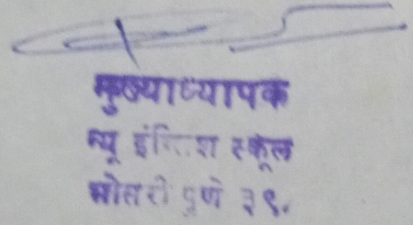 मुख्याध्यापक
न्यू इंग्लिश स्कूल
भोसरी पुणे ३९.